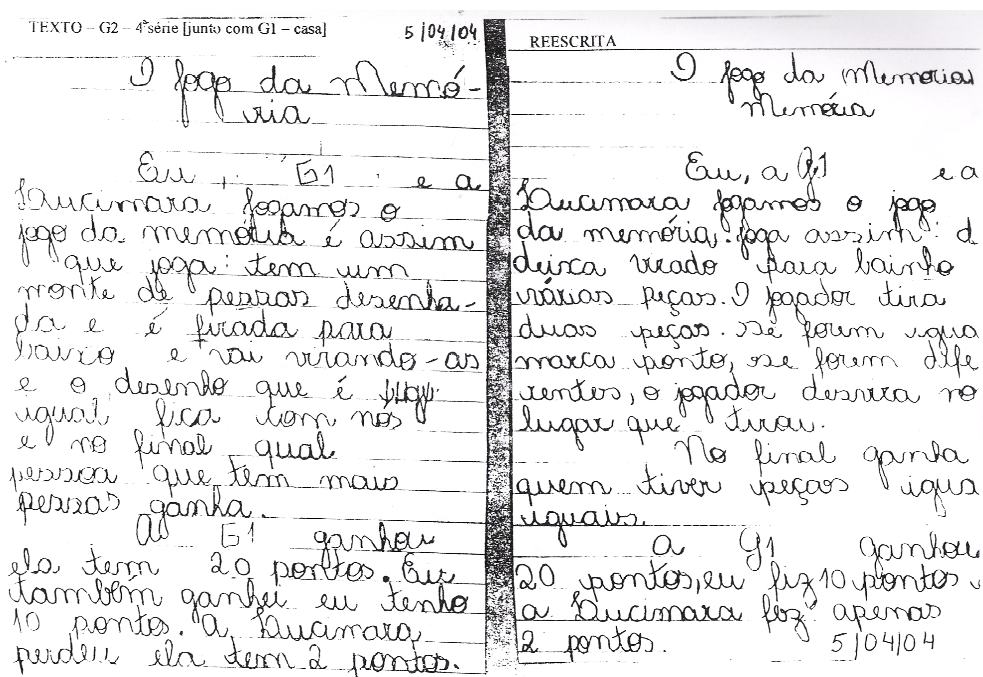 TEXTO – G2 – 4ª série [junto com G1 – casa] 5/04/04
O jogo da Memó-
ria
Eu, G1 e a
Ducimara jogamos o
jogo da memória é assim
que joga: tem um
monte de pessas desenha-
da e é firada para
baixo e vai virando-as
e o desenho que é
igual fica com nós
e no final qual
pessoa que tem mais
pessas ganha.
A G1 ganhou
ela tem 20 pontos. Eu
também ganhei eu tenho
10 pontos. A Ducimara
perdeu ela tem 2 pontos.
REESCRITA
O jogo da Memoria
Memória
Eu, a G1 e a
Ducimara jogamos o jogo
da memória, joga assim: d
deixa virado para bainho
várias peças. O jogador tira
duas peças. Se forem igua
marca ponto, se forem dife
rentes, o jogador desvira no
lugar que tirou.
No final ganha
quem tiver peças igua
iguais.
A G1 ganhou
20 pontos, eu fiz 10 pontos
a Ducimara fez apenas
2 pontos. 5/04/04